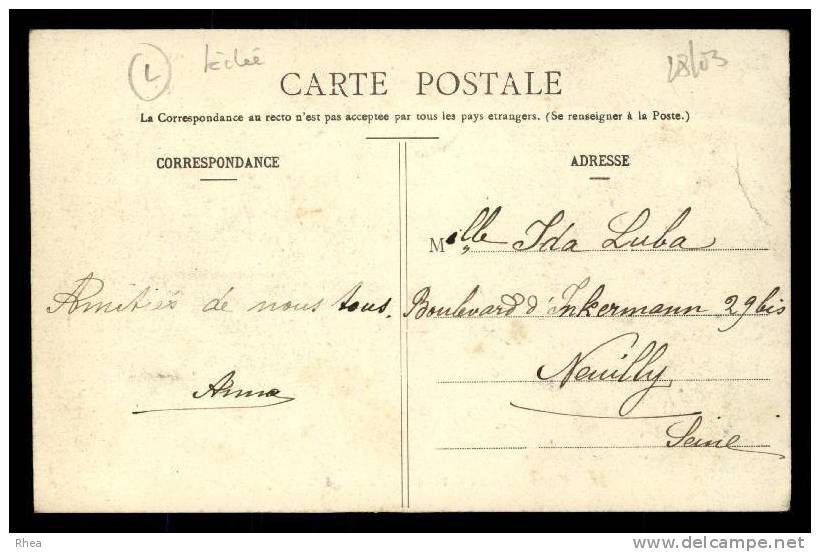 L
28/03
CARTE POSTALE
La Correspondance au recto n'est pas acceptee par tous les pays etrangers. (Se renseigner à la Poste.)
CORRESPONDANCE
ADRESSE
Mlle Ida Luba
Amitiés de nous tous.
Boulevard d'Inkermann 29bis
Neuilly
Anna
Seine
Rhea
www.delcampe.net